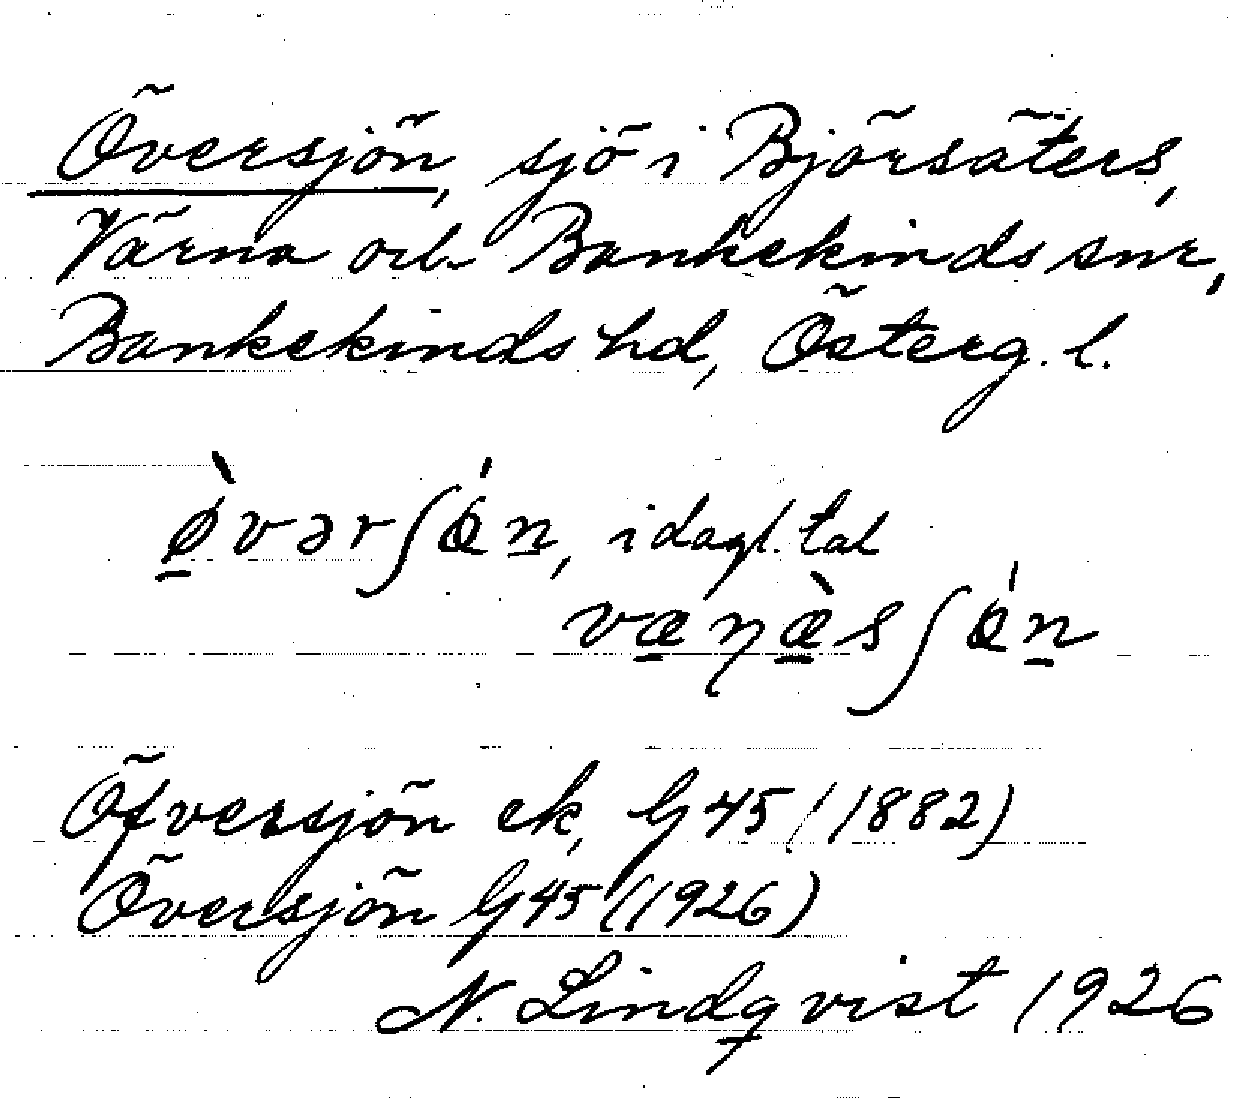 Översjön, sjö i Björsäters,
Värna och Bankekinds snr,
Bankekinds hd, Österg. l.
ø̠̀vərʃɵ́n̠, i dagl. tal
væ̠ŋæ̠̀sʃɵ́n̠
Öfversjön ek, G 45 (1882)
Översjön G 45 (1926)
N. Lindqvist 1926